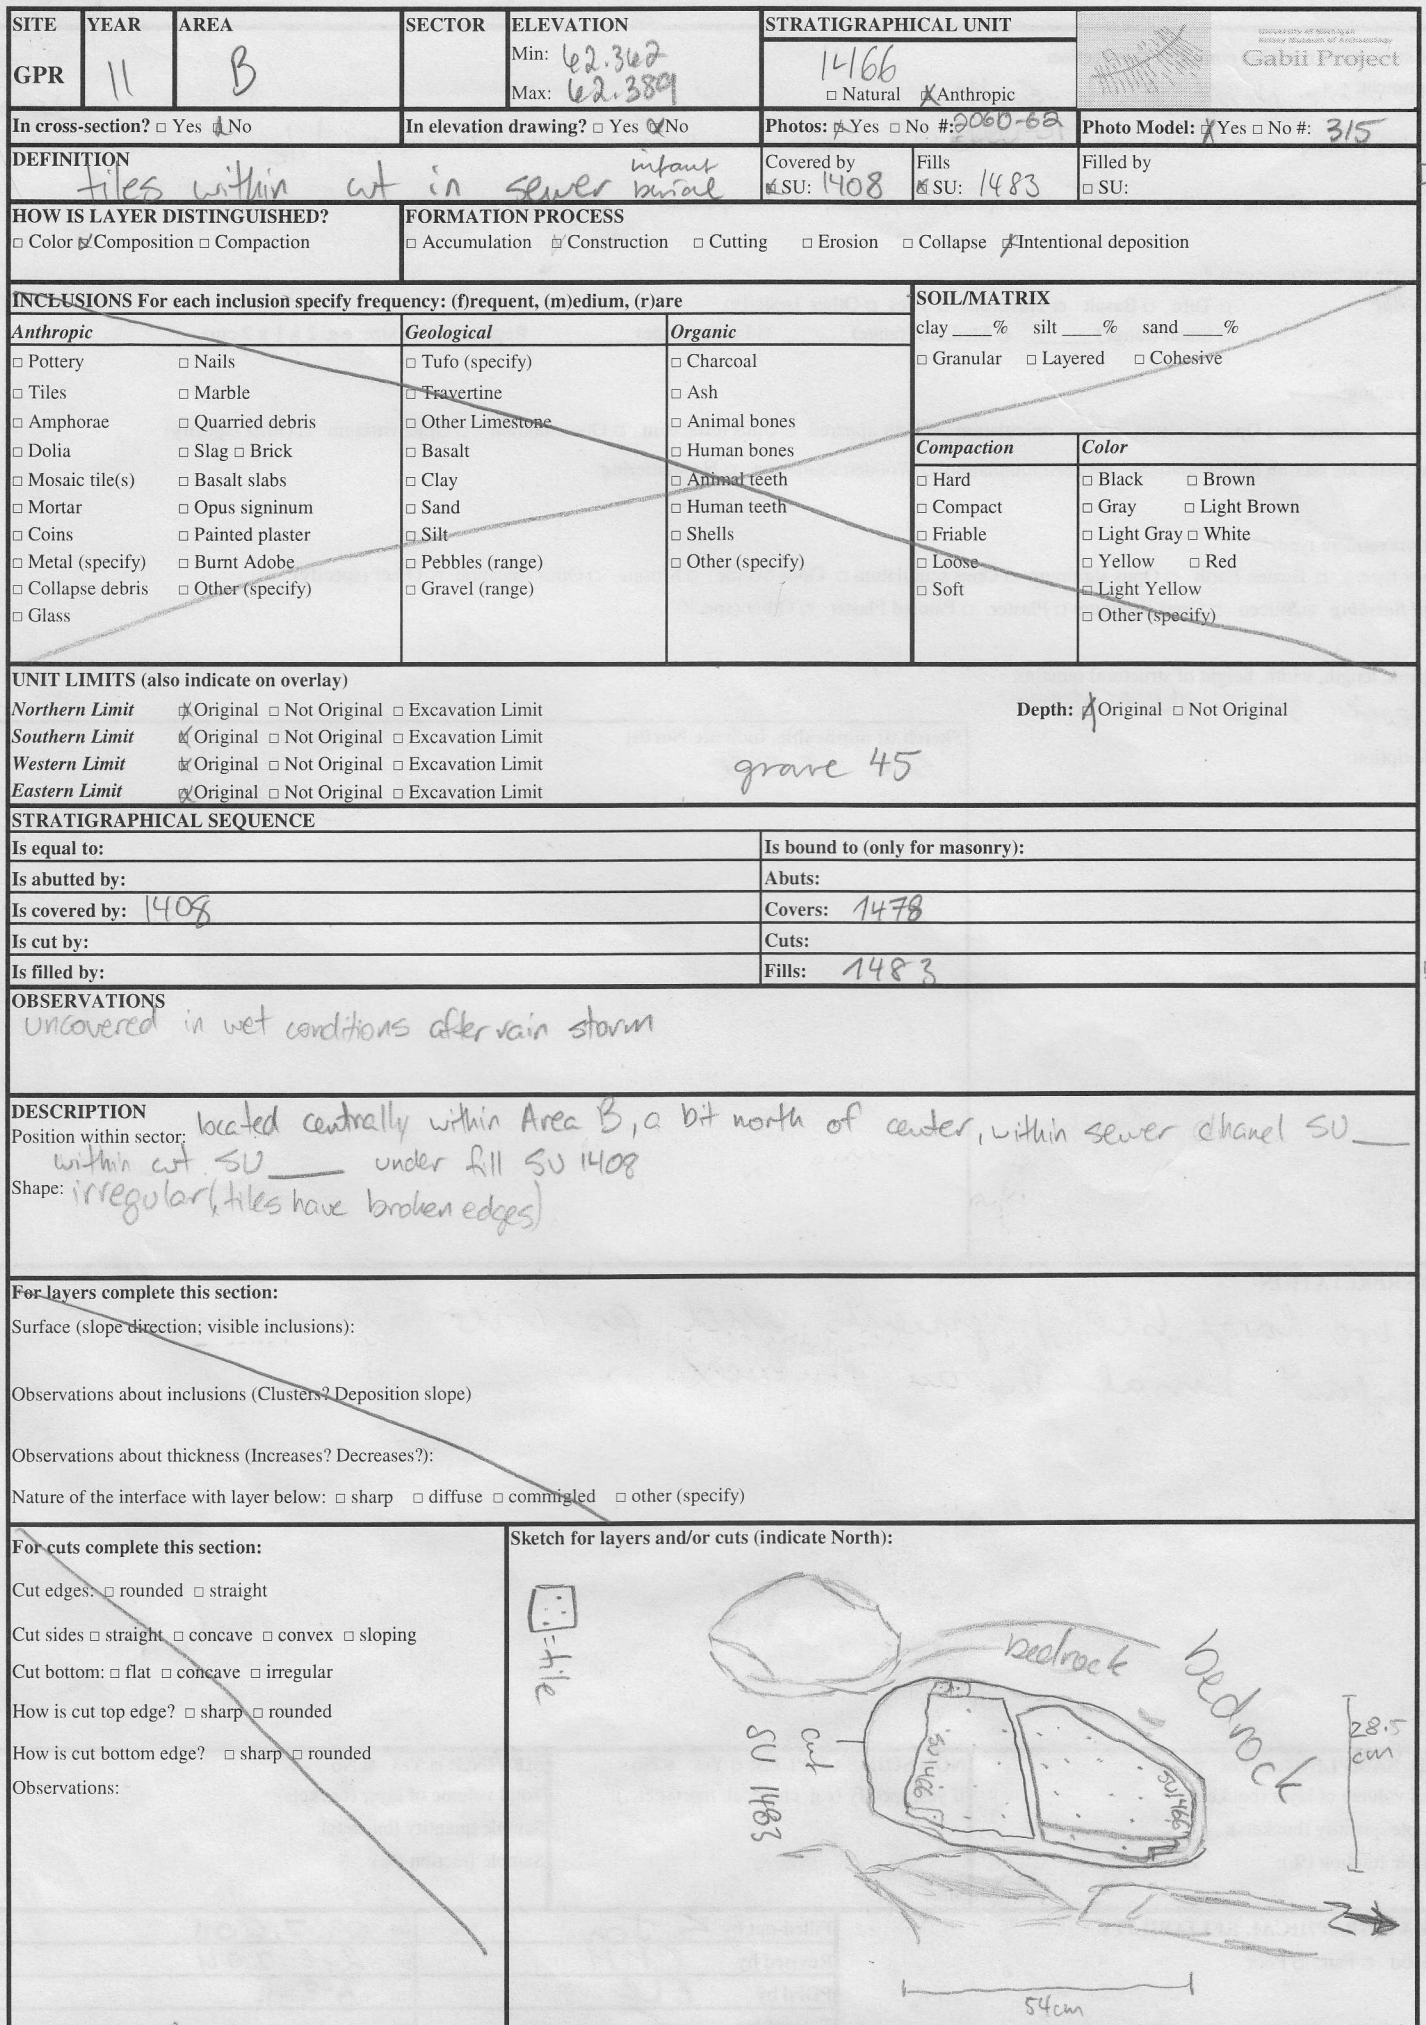 SITE YEAR AREA SECTOR ELEVATION STRATIGRAPHICAL UNIT
GPR 11 B Min: 62.362 Max: 62.389 1466
□ Natural ☒ Anthropic
University of Michigan
Kelsey Museum of Archaeology
Gabii Project
In cross-section? □ Yes ☒ No In elevation drawing? □ Yes ☒ No Photos: ☒ Yes □ No #: 2060-62 Photo Model: ☒ Yes □ No #: 315
DEFINITION
tiles within cut in sewer infant burial
Covered by ☒ SU: 1408 Fills ☒ SU: 1483 Filled by □ SU:
HOW IS LAYER DISTINGUISHED?
□ Color ☒ Composition □ Compaction
FORMATION PROCESS
□ Accumulation □ Construction □ Cutting □ Erosion □ Collapse ☒ Intentional deposition
INCLUSIONS For each inclusion specify frequency: (f)requent, (m)edium, (r)are
Anthropic
□ Pottery □ Nails
□ Tiles □ Marble
□ Amphorae □ Quarried debris
□ Dolia □ Slag □ Brick
□ Mosaic tile(s) □ Basalt slabs
□ Mortar □ Opus signinum
□ Coins □ Painted plaster
□ Metal (specify) □ Burnt Adobe
□ Collapse debris □ Other (specify)
□ Glass
Geological
□ Tufo (specify)
□ Travertine
□ Other Limestone
□ Basalt
□ Clay
□ Sand
□ Silt
□ Pebbles (range)
□ Gravel (range)
Organic
□ Charcoal
□ Ash
□ Animal bones
□ Human bones
□ Animal teeth
□ Human teeth
□ Shells
□ Other (specify)
SOIL/MATRIX
clay ____% silt ____% sand ____%
□ Granular □ Layered □ Cohesive
Compaction
□ Hard
□ Compact
□ Friable
□ Loose
□ Soft
Color
□ Black □ Brown
□ Gray □ Light Brown
□ Light Gray □ White
□ Yellow □ Red
□ Light Yellow
□ Other (specify)
UNIT LIMITS (also indicate on overlay)
Northern Limit ☒ Original □ Not Original □ Excavation Limit Depth: ☒ Original □ Not Original
Southern Limit ☒ Original □ Not Original □ Excavation Limit
Western Limit ☒ Original □ Not Original □ Excavation Limit grave 45
Eastern Limit ☒ Original □ Not Original □ Excavation Limit
STRATIGRAPHICAL SEQUENCE
Is equal to: Is bound to (only for masonry):
Is abutted by: Abuts:
Is covered by: 1408 Covers: 1478
Is cut by: Cuts:
Is filled by: Fills: 1483
OBSERVATIONS
uncovered in wet conditions after rain storm
DESCRIPTION
Position within sector: located centrally within Area B, a bit north of center, within sewer chanel SU___
within cut SU____ under fill SU 1408
Shape: irregular (tiles have broken edges)
For layers complete this section:
Surface (slope direction; visible inclusions):
Observations about inclusions (Clusters? Deposition slope)
Observations about thickness (Increases? Decreases?):
Nature of the interface with layer below: □ sharp □ diffuse □ commigled □ other (specify)
For cuts complete this section:
Cut edges: □ rounded □ straight
Cut sides □ straight □ concave □ convex □ sloping
Cut bottom: □ flat □ concave □ irregular
How is cut top edge? □ sharp □ rounded
How is cut bottom edge? □ sharp □ rounded
Observations:
Sketch for layers and/or cuts (indicate North):
= tile
bedrock
bedrock
cut
SU 1483
SU1466
SU1466
28.5
cm
54cm